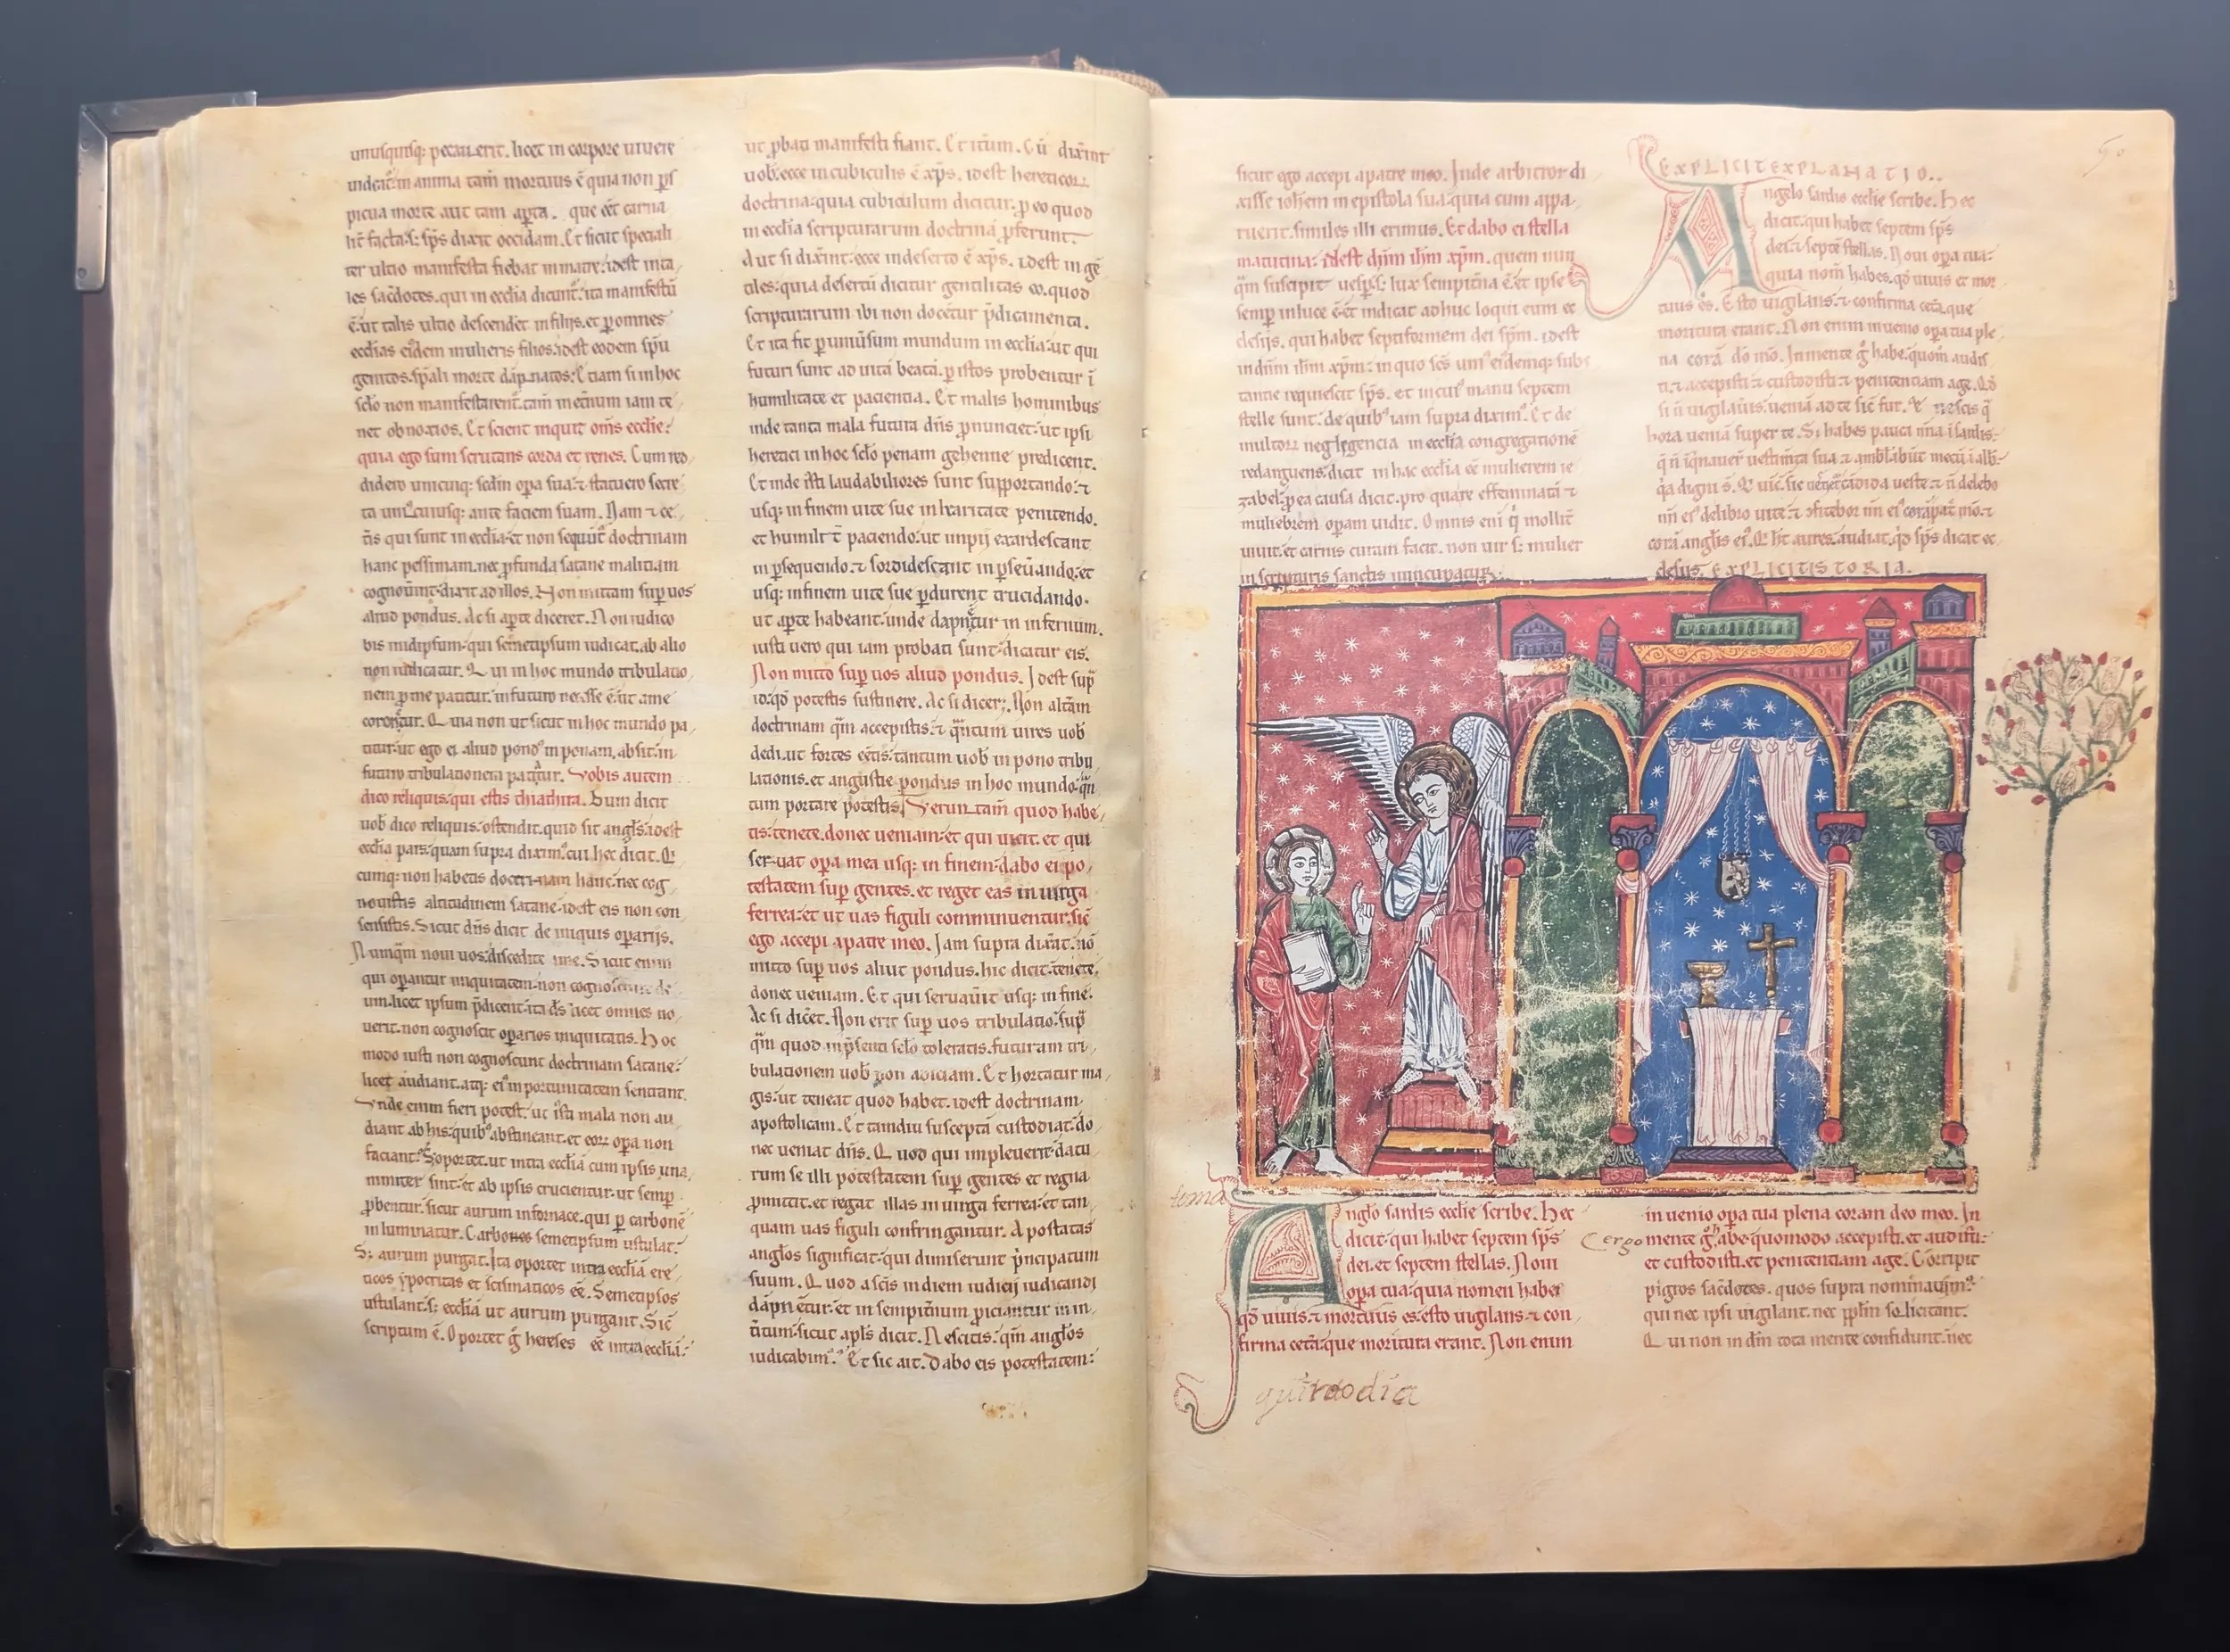 unusquisq: peccauerit. licet in corpore uiuere
uideat̄. in anima tam̄ mortuus ē quia non ꝑs
picua morte aut tam aꝑta. que eēt carna
lit̄ facta. s: sp̄s dixit occidam. Et sicut speciali
ter ultio manifesta fiebat in matre. idest in ta
les sac̄dotes. qui in ecclīa dicunt̄. ita manifestū
ē. ut talis ultio descendēt in filijs. et ꝑ omnes
ecclīas eīdem mulieris filios. idest eodem sp̄u
genitos. sp̄ali morte dāpnatos. Etiam si in hoc
sc̄lo non manifestarent̄. tam̄ in et̄num iam te
net obnoxios. Et scient inquit om̄s ecclīe:
quia ego sum scrutans corda et renes. Cum red
didero unicuiq: scd̄m oꝑa sua. ⁊ statuero secre
ta uniꝰcuiusq: ante faciem suam. Nam ⁊ ce
t̄is qui sunt in ecclīa. et non sequūt̄ doctrinam
hanc pessimam. nec ꝓfunda satane malitiam
cognouunt. dixit ad illos. Non mittam suꝑ uos
aliud pondus. Ac si aꝑte diceret. Non iudico
bis in idipsum. qui semetipsum iudicat. ab alio
non iudicatur. Qui in hoc mundo tribulatio
nem ꝑ me patitur. in futuro necesse ē. ut a me
coronetur. Quia non ut sicut in hoc mundo pa
titur. ut ego ei aliud pondꝰ inponam. absit. in
futuro tribulationem patiatur. Vobis autem
dico reliquis. qui estis thiathira. Dum dicit
uob̄ dico reliquis. ostendit. quid sit angl̄s. idest
ecclīa pars. quam supra diximꝰ. cui hec dicit. Q̄
cumq: non habetis doctrinam hanc. nec cog
nouistis altitudinem satane. idest eis non con
sensistis. Sicut dn̄s dicit de iniquis oꝑarijs.
Numq̄m noui uos. discedite a me. Sicut enim
qui oꝑantur iniquitatem. non cognoscunt de
um. licet ipsum p̄dicent. ita d̄s licet omnes no
uerit. non cognoscit oꝑarios iniquitatis. Hoc
modo iusti non cognoscunt doctrinam satane:
licet audiant. atq: eiꝰ inportunitatem sentiant.
Vnde enim fieri potest. ut isti mala non au
diant ab his. quibꝰ abstineant. et eoꝝ oꝑa non
faciant. S: oportet. ut intra ecclīā cum ipsis una
nimiter sint. et ab ipsis crucientur. ut semꝑ
ꝓbentur. sicut aurum in fornace. qui ꝑ carbonē
inluminatur. Carbones semetipsum ustulat.
S: aurum purgat. Ita oportet intra ecclīā ere
ticos ypocritas et scismaticos eē. Semetipsos
ustulant. s: ecclīā ut aurum purgant. Sic
scriptum ē. Oportet ḡ hereses eē intra ecclīā:
ut ꝓbati manifesti fiant. Et iterum. Cū dixīnt
uob̄. ecce in cubiculis ē xp̄s. idest hereticoꝝ
doctrina. quia cubiculum dicitur. ꝑ eo quod
in ecclīa scripturarum doctrinā ꝓferunt.
Aut si dixīnt. ecce in deserto ē xp̄s. idest in gē
tiles. quia desertū dicitur gentilitas eo. quod
scripturarum ibi non docētur p̄dicamenta.
Et ita fit ꝑ uniūsum mundum in ecclīa. ut qui
futuri sunt ad uitā beatā. ꝑ istos probentur ī
humilitate et paciencia. Et malis hominibus
inde tanta mala futura dn̄s ꝓnunciet. ut ipsi
heretici in hoc sc̄lo penam gehenne predicent.
Et inde isti laudabiliores sunt supportando. ⁊
usq: in finem uite sue in karitate penitendo.
et humilit̄ paciendo. ut impij exardescant
in ꝑsequendo. ⁊ sordidescant in ꝑseūando. et
usq: in finem uite sue ꝑdurent trucidando.
ut aꝑte habeant. unde dapnētur in infernum.
iusti uero qui iam probati sunt. dicatur eis.
Non mitto suꝑ uos aliud pondus. Idest suꝑ
id. qd̄ potestis sustinere. Ac si diceꝫ. Non altām
doctrinam q̄m accepistis. ⁊ q̄ntum uires uob̄
dedi. ut fortes eētis. tantum uob̄ in pono tribu
lationis. et angustie pondus in hoc mundo. q̄n
tum portare potestis. Veruntam̄ quod habe
tis. tenete. donec ueniam. et qui uicit. et qui
seruat oꝑa mea usq: in finem. dabo ei po
testatem suꝑ gentes. et reget eas in uirga
ferrea. et ut uas figuli comminuentur. sic̄
ego accepi a patre meo. Iam supra dixat. nō
mitto suꝑ uos aliut pondus. hic dicit. tenete.
donec ueniam. Et qui seruauīt usq: in fine.
Ac si dic̄et. Non erit suꝑ uos tribulatio. suꝑ
q̄m quod in p̄senti sc̄lo toleratis. futuram tri
bulationem uob̄ non adiciam. Et hortatur ma
gis. ut teneat quod habet. idest doctrinam
apostolicam. Et tamdiu susceptā custodiat. do
nec ueniat dn̄s. Quod qui impleuerit. datu
rum se illi potestatem suꝑ gentes et regna
ꝓmittit. et regat illas in uirga ferrea. et tan
quam uas figuli confringantur. Apostatas
angl̄os significat. qui dimiserunt p̄ncipatum
suum. Quod a sc̄is in diem iudicij iudicandi
dāpnētur. et in sempit̄num ꝓiciantur in in
t̄itum. sicut apl̄s dicit. Nescitis. qm̄ angl̄os
iudicabimꝰ. Et sic ait. Dabo eis potestatem:
sicut ego accepi a patre meo. Inde arbitror di
xisse ioh̄em in epistola sua. quia cum appa
ruerit. similes illi erimus. Et dabo ei stella
matutina. idest dn̄m ih̄m xp̄m. quem nun
q̄m suscipit uesꝑ. s: lux sempit̄na ē. et ipse
semꝑ in luce ē. et indicat adhuc loqui eum ec
clesijs. qui habet septiformem dei sp̄m. idest
in dn̄m ih̄m xp̄m. in quo sc̄s unꝰ eīdemq: subs
tantie requiescit sp̄s. et in cuiꝰ manu septem
stelle sunt. de quibꝰ iam supra diximꝰ. Et de
multoꝝ neglegencia in ecclīa congregationē
redarguens. dicit in hac ecclīa eē mulierem ie
zabel. ꝓ ea causa dicit. pro quare effeminati ⁊
muliebrem oꝑam uidit. Omnis eni q̄ mollit̄
uiuit. et carnis curam facit. non uir s: mulier
in scripturis sanctis nuncupatur.
EXPLICIT EXPLANATIO.
Angelo sardis ecclīe scribe. Hec
dicit. qui habet septem sp̄s
dei. ⁊ septē stellas. Noui oꝑa tua.
quia nom̄ habes. qd̄ uiuis et mor
tuus es. Esto uigilans. ⁊ confirma cet̄a. que
moritura erant. Non enim inuenio oꝑa tua ple
na corā dō mō. In mente ḡ habe. quom̄ audis
ti. ⁊ accepisti. ⁊ custodisti. ⁊ penitentiam age. Qd̄
si n̄ uigilaūis. ueniā ad te sic̄ fur. ⁊ nescis q̄
hora ueniā super te. Si habes pauca nn̄a ī sardis.
q̄ n̄ iq̄nauer̄ uestimēta sua. ⁊ amblabūt mecū ī alb.
q̄a digni s̄. Q uic̄. sic ueget̄ cādida ueste. ⁊ n̄ delebo
nn̄ eiꝰ de libro uite. ⁊ ꝯfitebor nn̄ eiꝰ corā pat̄ mō. ⁊
corā angl̄is eiꝰ. Q ht̄ aures. audiat. qd̄ sp̄s dicat ec
clesijs. EXPLICIT ISTORIA.
toma
Anglo sardis ecclīe scribe. Hec
dicit. qui habet septem sp̄s
dei. et septem stellas. Noui
oꝑa tua. quia nomen habes
qd̄ uiuis. ⁊ mortuus es. esto uigilans. ⁊ con
firma cet̄a. que moritura erant. Non enim
in uenio oꝑa tua plena coram deo meo. In
Cergo
mente ḡ habe. quomodo accepisti. et audisti.
et custodisti. et penitentiam age. Corripit
pigros sac̄dotes. quos supra nominauimꝰ.
qui nec ipsi uigilant. nec ppl̄m solicitant.
Qui non in dn̄m tota mente confidunt. nec